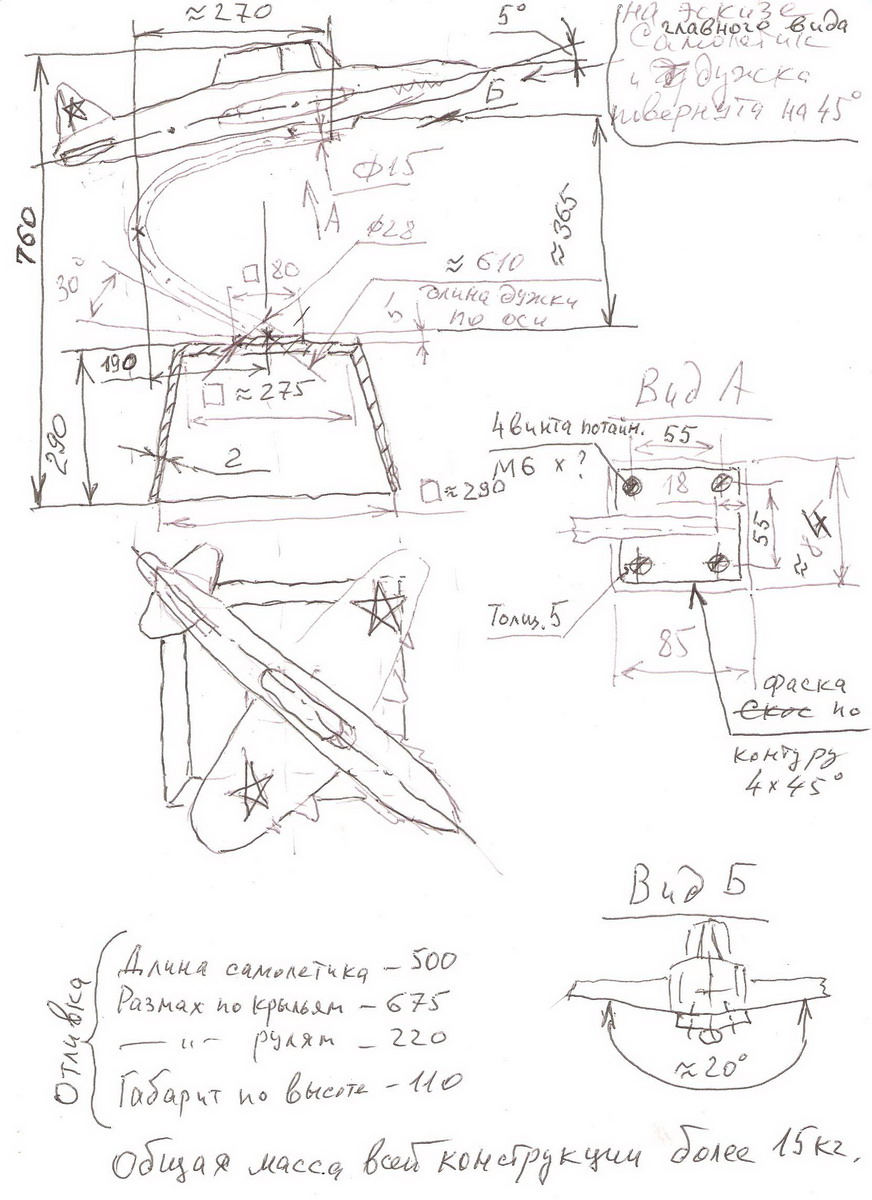 ≈ 270
5°
на эскизе
главного вида
Самолетик
и дужка
повернута на 45°
Б
760
Ф15
А
ϕ28
≈ 365
30°
□ 80
≈ 610
длина дужки
по оси
5
190
□ ≈ 275
290
2
□≈290
Вид А
4 винта потайн.
М6 х ?
55
18
55
Толщ. 5
85
фаска
по
контуру
4х45°
Вид Б
≈20°
Отливка
Длина самолетика – 500
Размах по крыльям – 675
— " – рулям – 220
Габарит по высоте – 110
Общая масса всей конструкции более 15кг.